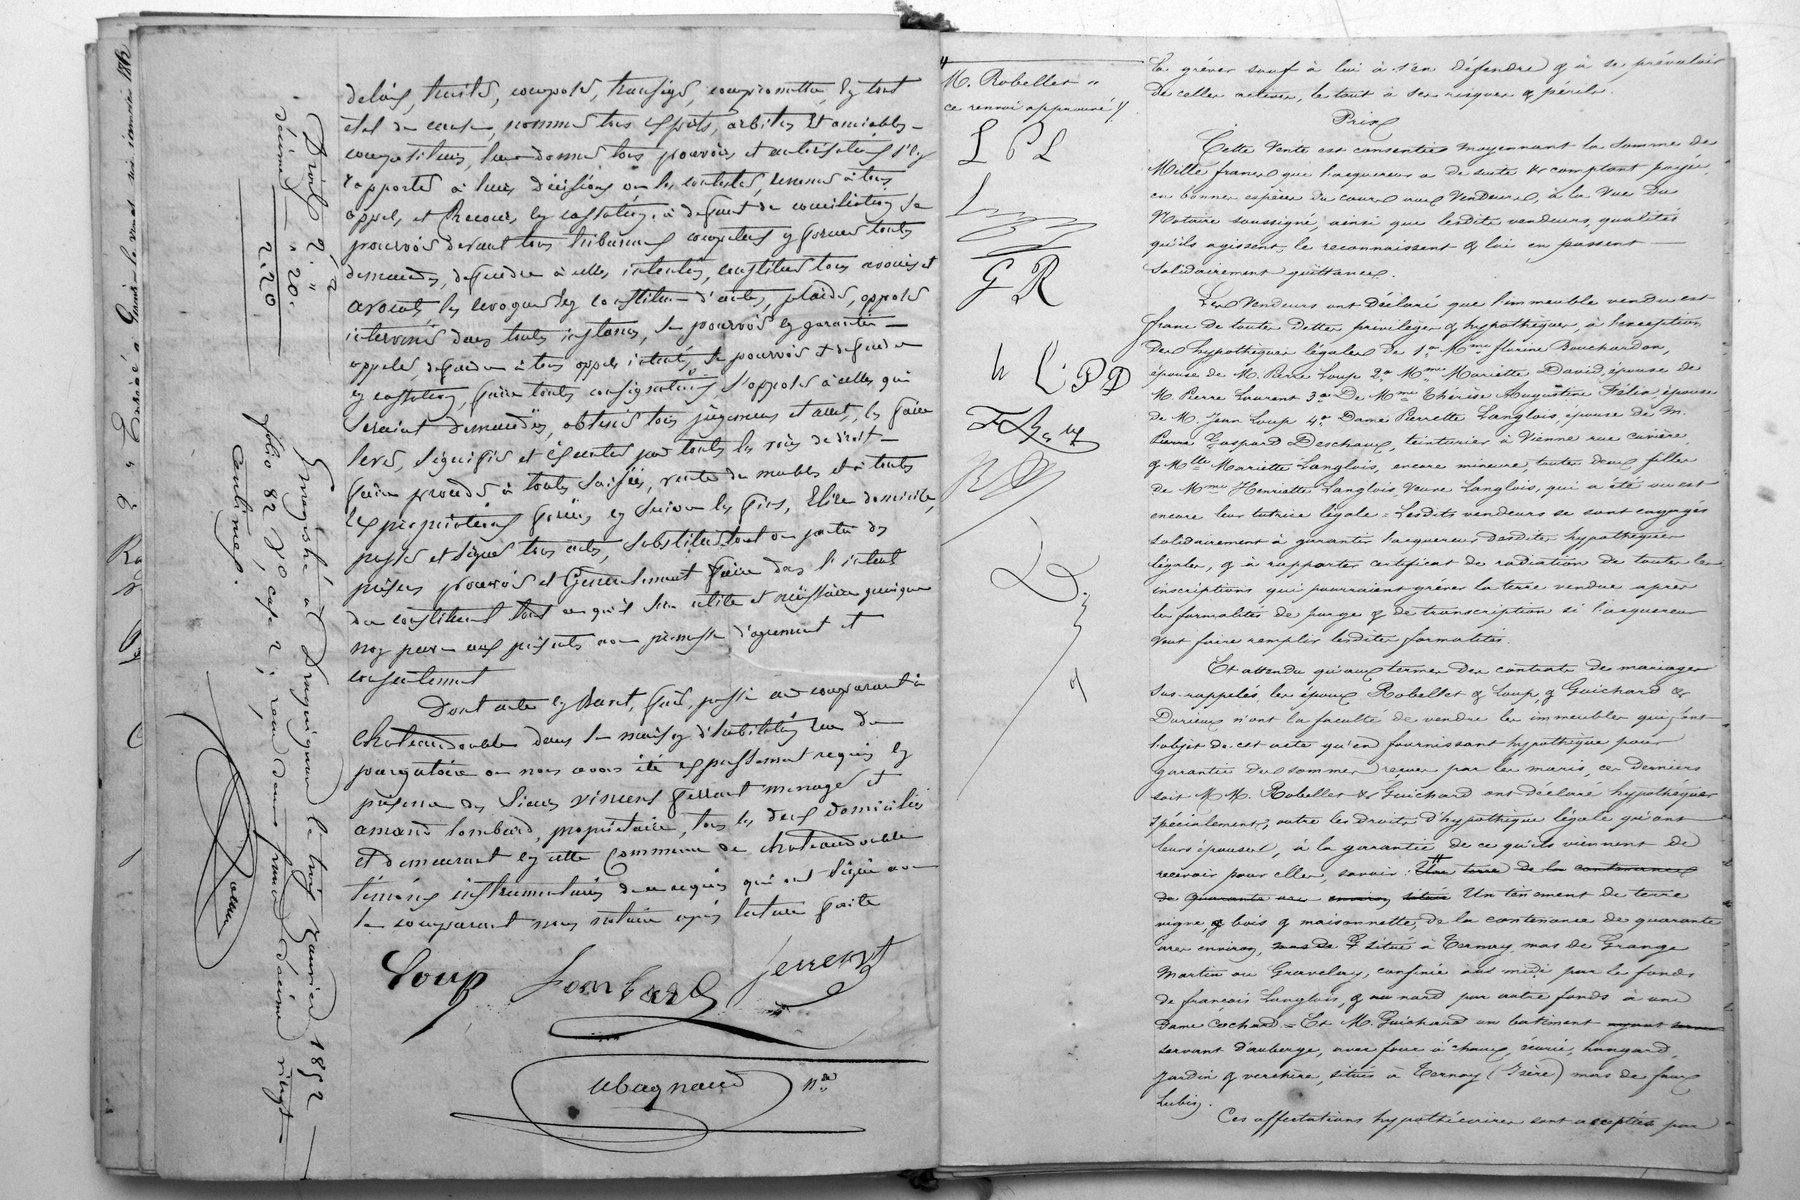 délais, traiter, composer, transiger, compromettre, en tout
état de cause, nommer tous experts, arbitres et amiables
compositeurs, leur donner tous pouvoirs et autorisations s'en
rapporter à leurs décisions ou les contester, renoncer à tous
appel, et Recours en cassation, à défaut de conciliation se
pourvoir devant tous tribunaux compétens y former toutes
demandes, défendre à celles intentées, constituer tous avoués et
avocats, les révoquer en constituer d'autres, plaider, opposer
intervenir dans toutes instances, se pourvoir en garantie
appeler, défendre à tous appels intentés, se pourvoir et défendre
en cassation, faire toutes consignations, s'opposer à celles qui
seraient demandées, obtenir tous jugemens et arrêts, les faire
lever, signifier et exécuter par toutes les voies de droit
faire procéder à toutes saisies, ventes de meubles et à toutes
expropriations forcées en suivre les fins, Elire domicile,
passer et signer tous actes, substituer tout ou partie des
présens pouvoirs et Généralement faire dans l'intérêt
du constituant tout ce qu'il sera utile et nécessaire quoique
non prévu aux présentes avec promesse d'agrément et
consentement
Dont acte en Brevet, fait, passé au comparant à
Chateaudouble dans la maison d'habitation rue du
purgatoire où nous avons été expressément requis en
présence des Sieurs vincens ferrant ménager et
amand Lombard, propriétaire, tous les deux domiciliés
et demeurant en cette Commune de chateaudouble
témoins instrumentaires de ce requis qui ont signé avec
le comparant nous notaire après lecture faite
Loup Lombard ferrent
abagnard nre
Enregistré à Draguignan le trois Janvier 1852
folio 82 Vo case 2, reçu deux francs décime vingt
Centimes.
Droit 2, "
décime " 20.
2.20
M. Robellet
ce renvoi approuvé
L P L
G R
h L P D
la gréver sauf à lui à s'en défendre & à se prévaloir
de celles actives, le tout à ses risques & périls.
Prix
Cette Vente est consentie moyennant la somme de
Mille francs que l'acquéreur a de suite & comptant payée
en bonnes espèces du cours aux Vendeurs, à la vue du
Notaire soussigné, ainsi que lesdits vendeurs, qualités
qu'ils agissent, le reconnaissent & lui en passent
solidairement quittance.
Les Vendeurs ont Déclaré que l'immeuble vendu est
franc de toutes dettes privilèges & hypothèques, à l'exception
des hypothèques légales de 1o Mme florine Bouchardon,
épouse de M. Pierre Loup 2o Mme Mariette David, épouse de
M. Pierre Laurent 3o De Mme Thérèse Augustine Félix, épouse
de M. Jean Loup 4o Dame Pierrette Langlois, épouse de M.
Pierre Gaspard Deschaux, teinturier à Vienne rue cuvière,
& Mlle Mariette Langlois, encore mineure, toutes deux filles
de Mme Henriette Langlois, Veuve Langlois, qui a été ou est
encore leur tutrice légale = Lesdits vendeurs se sont engagés
solidairement à garantir l'acquéreur desdites hypothèques
légales, & à rapporter certificat de radiation de toutes les
inscriptions qui pourraient gréver la terre vendue après
les formalités de purge & de transcription si l'acquéreur
veut faire remplir lesdites formalités.
Et attendu qu'aux termes des contrats de mariages
sus-rappelés les époux Robellet & Loup, & Guichard &
Darieux n'ont la faculté de vendre les immeubles qui font
l'objet de cet acte qu'en fournissant hypothèque pour
garantie des sommes reçues par les maris, ces derniers
soit M M. Robellet & Guichard ont déclaré hypothéquer
spécialement, outre les droits d'hypothèque légale qu'ont
leurs épouses, à la garantie de ce qu'ils viennent de
recevoir pour elles, savoir: Une terre de la contenance
de quarante ares environ située Un tènement de terre
vigne, & bois & maisonnette, de la contenance de quarante
ares environ, mas de situé à Ternay mas de Grange
Martin ou Gravelay, confiné au midi par le fonds
de françois Langlois, & au nord par autre fonds à une
Dame Cochard = Et M. Guichard un bâtiment
servant d'auberge, avec four à chaux, écurie, hangard,
Jardin & verchère, situés à Ternay (Isère) mas de faux
Lubin.
Ces affectations hypothécaires sont acceptées par